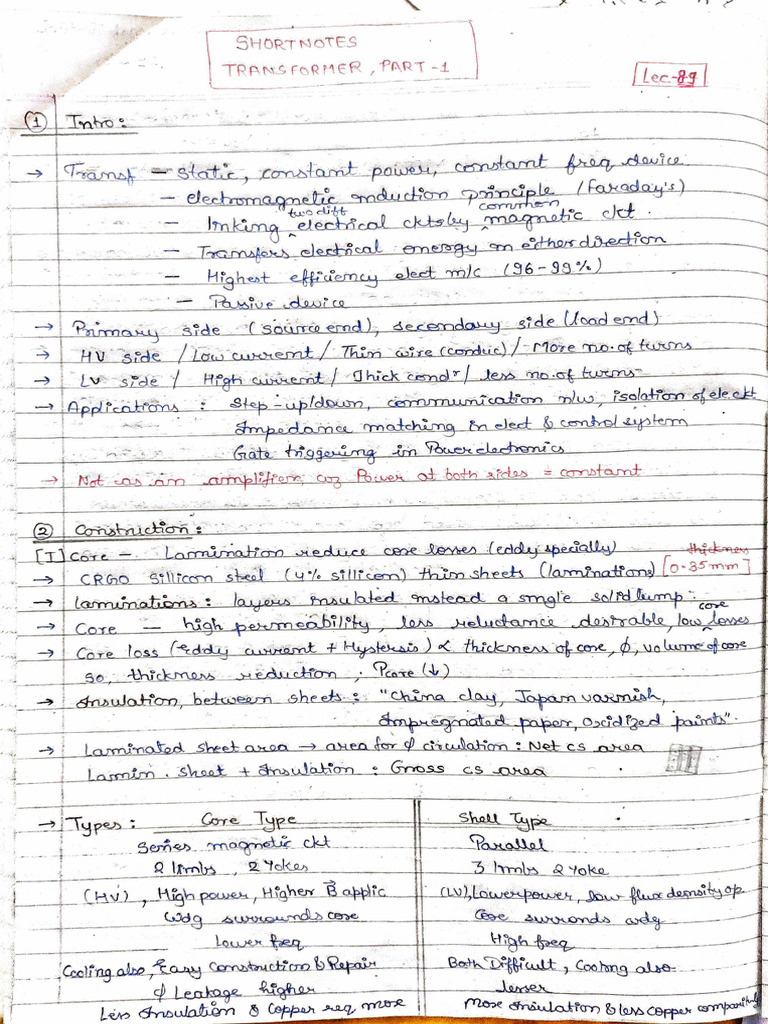 SHORTNOTES
TRANSFORMER, PART-1
Lec-89
① Intro:
→ Transf - Static, constant power, constant freq device
- electromagnetic induction principle (Faraday's)
- linking two diff electrical ckts by common magnetic ckt.
- Transfers electrical energy in either direction
- Highest efficiency elect m/c (96-99%)
- Passive device
→ Primary side (source end), secondary side (load end)
→ HV side / Low current / Thin wire (conduc) / More no. of turns
→ LV side / High current / Thick condr / less no. of turns
→ Applications: Step-up/down, communication n/w, isolation of ele ckt
Impedance matching in elect & control system
Gate triggering in Power electronics
→ Not as an amplifier, coz Power at both sides = constant
② Construction:
[I] Core - Lamination reduce core losses (eddy specially)
→ CRGO Sillicon steel (4% sillicon) thin sheets (laminations) [0.35mm] thickness
→ laminations: layers insulated instead a single solid lump.
→ Core - high permeability, less reluctance desirable, low core losses
→ Core loss (eddy current + Hystersis) ∝ thickness of core, ϕ, volume of core
so, thickness reduction, Pcore (↓)
→ Insulation, between sheets: "China clay, Japan varnish,
Impregnated paper, Oxidized paints".
→ Laminated sheet area → area for ϕ circulation: Net cs area
Lamin. sheet + Insulation: Gross cs area
→ Types: Core Type Shell Type
Series magnetic ckt Parallel
2 limbs, 2 Yokes 3 limbs 2 yoke
(HV), High power, Higher B⃗ applic (LV), Lower power, low flux density op
Wdg surrounds core Core surronds wdg
Lower freq High freq
Cooling also, Easy Construction & Repair Both Difficult, Cooling also
ϕ Leakage higher lesser
Less Insulation & Copper req more More Insulation & less copper